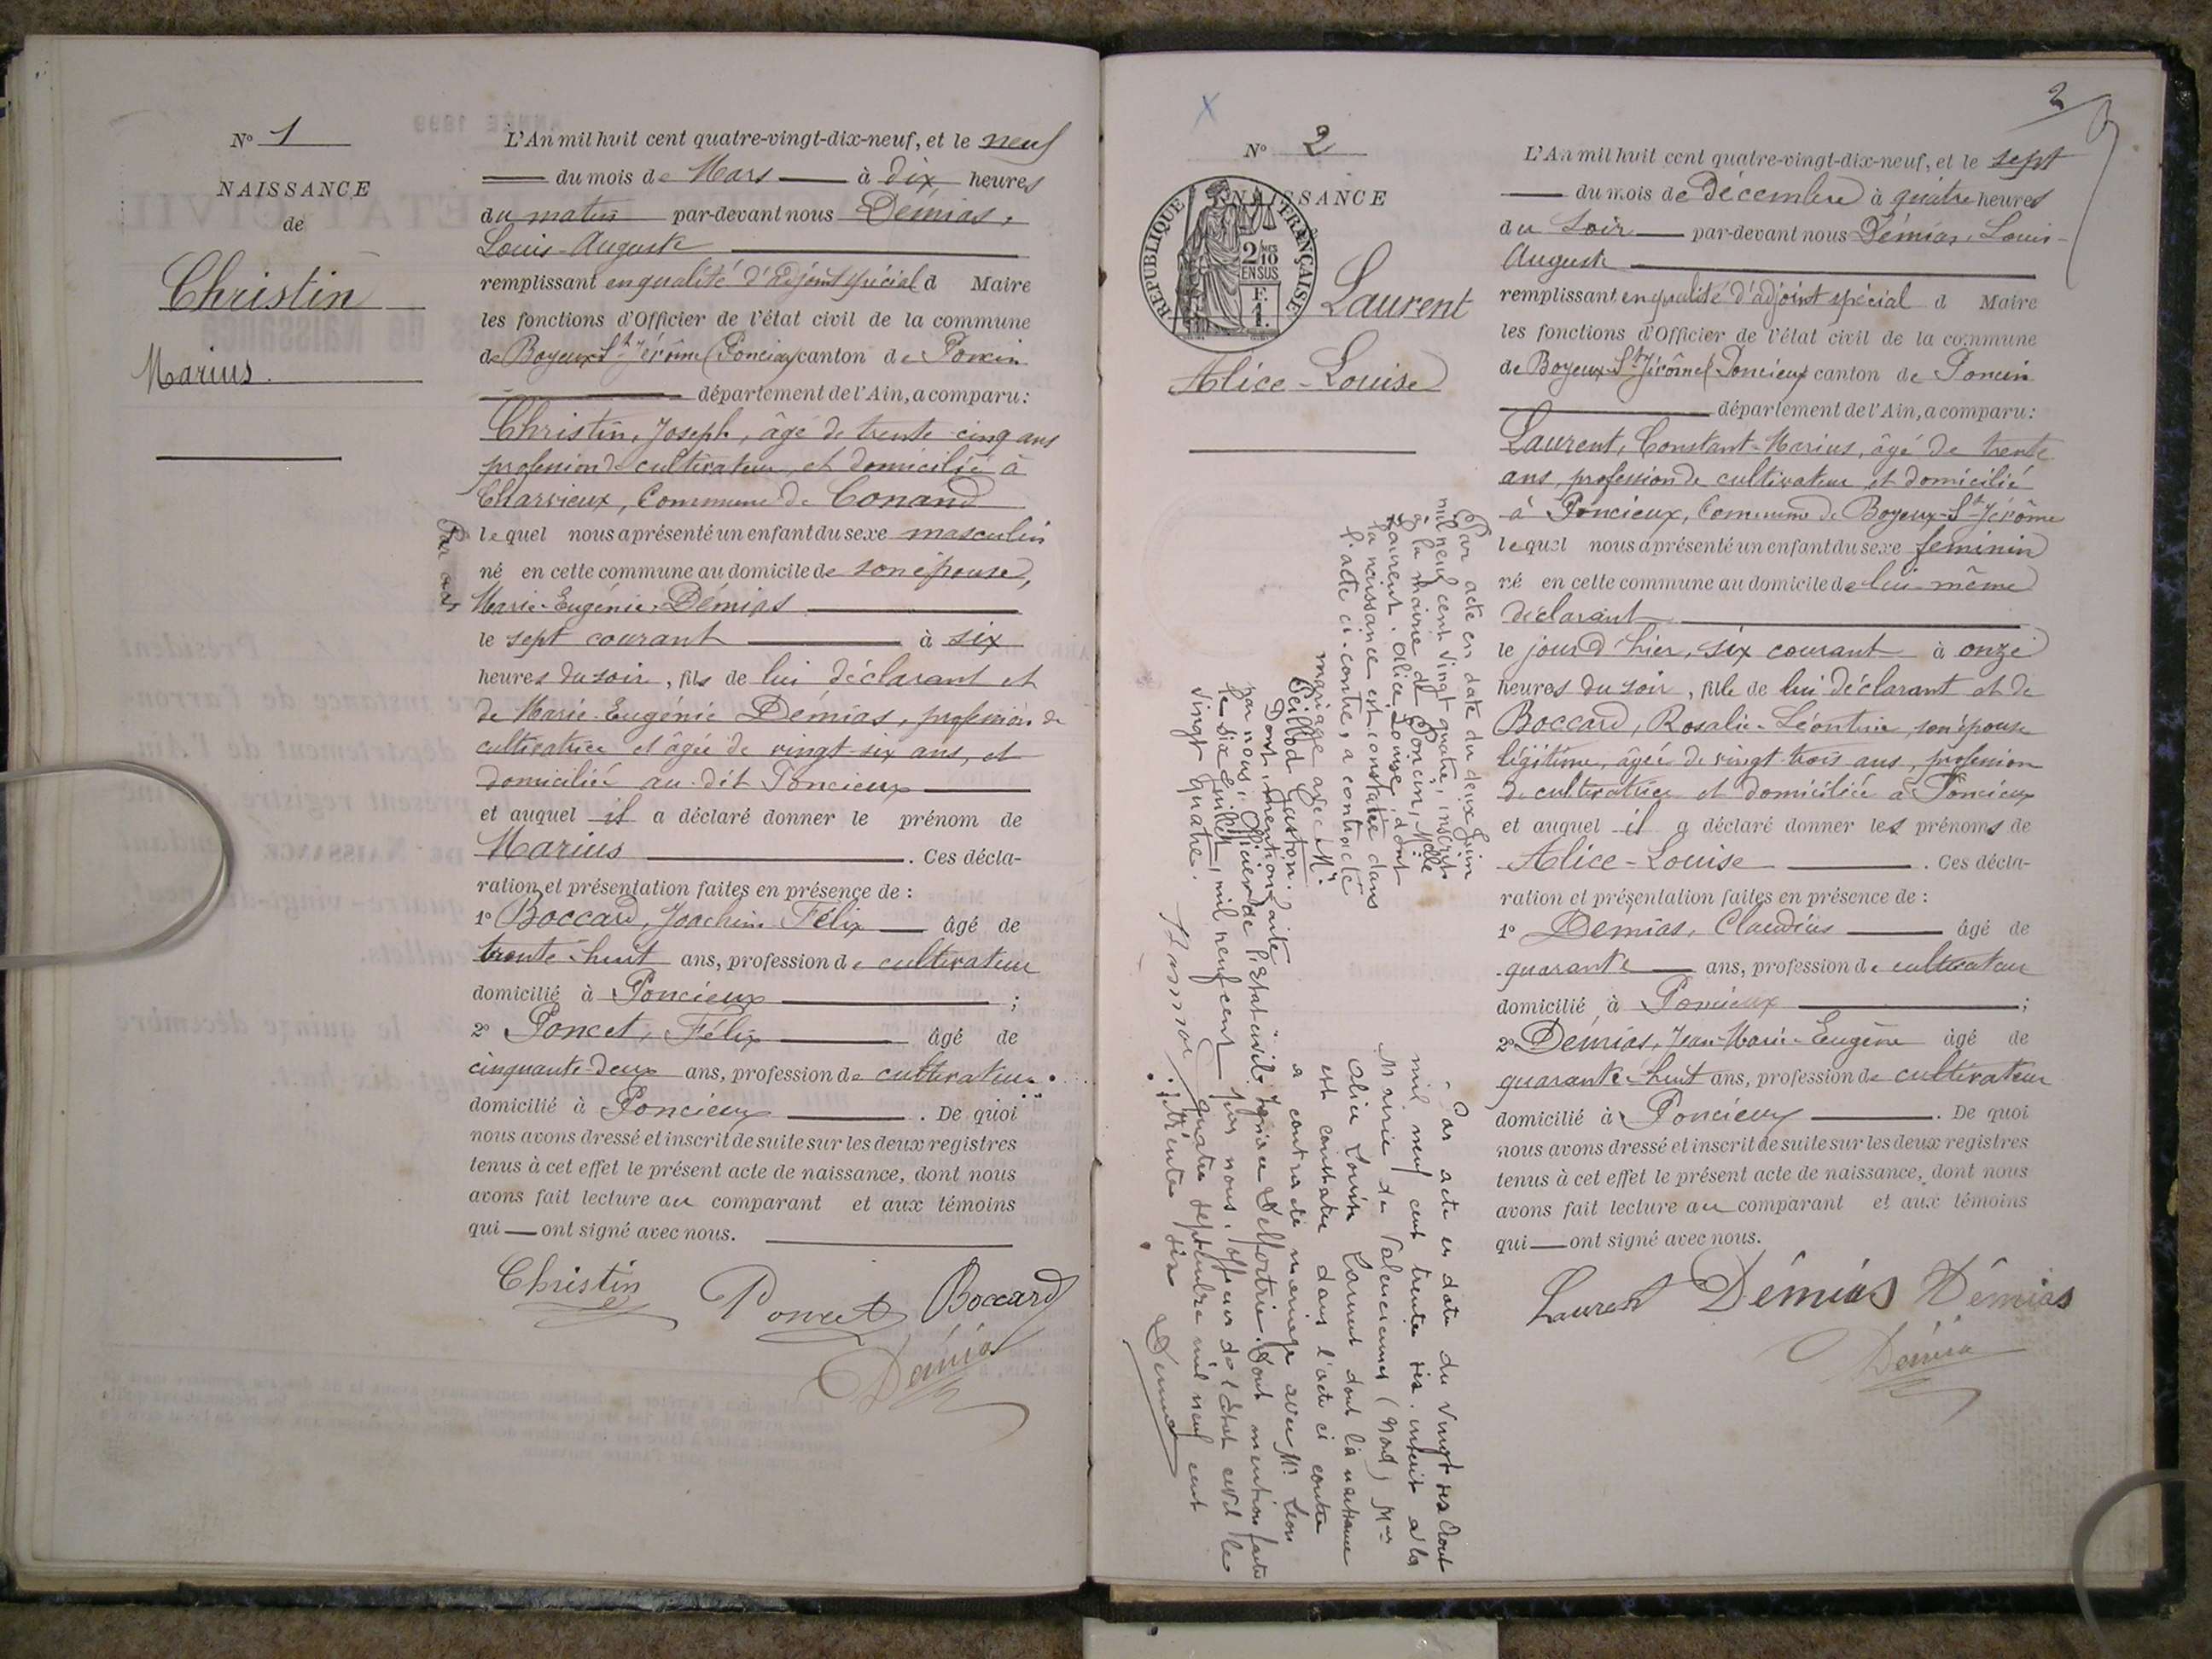 N° 1
NAISSANCE
de
Christin
Marius.
L'An mil huit cent quatre-vingt-dix-neuf, et le neuf
du mois de Mars à dix heures
du matin par-devant nous Démias,
Louis-Auguste
remplissant en qualité d'adjoint spécial d Maire
les fonctions d'Officier de l'état civil de la commune
de Boyeux-St-Jérôme (Poncieux) canton de Poncin
département de l'Ain, a comparu:
Christin, Joseph, âgé de trente-cinq ans
profession de cultivateur et domicilié à
Charvieux, Commune de Conand
lequel nous a présenté un enfant du sexe masculin
né en cette commune au domicile de son épouse,
Marie-Eugénie Démias
le sept courant à six
heures du soir, fils de lui déclarant et
de Marie-Eugénie Démias, profession de
cultivatrice et âgée de vingt-six ans, et
domiciliée au dit Poncieux
et auquel il a déclaré donner le prénom de
Marius. Ces décla-
ration et présentation faites en présence de :
1° Boccard, Joachim Félix âgé de
trente-huit ans, profession de cultivateur
domicilié à Poncieux ;
2° Poncet, Félix âgé de
cinquante-deux ans, profession de cultivateur
domicilié à Poncieux. De quoi
nous avons dressé et inscrit de suite sur les deux registres
tenus à cet effet le présent acte de naissance, dont nous
avons fait lecture au comparant et aux témoins
qui ont signé avec nous.
Christin Poncet Boccard
Démias
Par acte
2
N° 2
NAISSANCE
RÉPUBLIQUE FRANÇAISE
2/10
EN SUS
F.
1.
Laurent
Alice-Louise
Par acte en date du deux Juin
mil neuf cent vingt quatre, inscrit
à la mairie de Poncin, Melle
Laurent Alice, Louise, dont
la naissance est constatée dans
l'acte ci-contre, a contracté
mariage avec Mr.
Peillod Gaston.
Dont mention faite
par nous, Officier de l'Etat civil
le dix Juillet, mil neuf cent
vingt quatre.
Par acte en date du vingt six Aout
mil neuf cent trente six inscrit à la
Mairie de Valenciennes (Nord) Mme
Alice Louise Laurent dont la naissance
est constatée dans l'acte ci contre
a contracté mariage avec Mr Léon
Dont mention faite
par nous, officier de l'Etat civil le
quatre septembre mil neuf cent
trente six
L'An mil huit cent quatre-vingt-dix-neuf, et le sept
du mois de Décembre à quatre heures
du soir par-devant nous Démias, Louis-
Auguste
remplissant en qualité d'adjoint spécial d Maire
les fonctions d'Officier de l'état civil de la commune
de Boyeux-St-Jérôme (Poncieux canton de Poncin
département de l'Ain, a comparu:
Laurent, Constant-Marius, âgé de trente
ans, profession de cultivateur et domicilié
à Poncieux, Commune de Boyeux-St-Jérôme
lequel nous a présenté un enfant du sexe féminin
né en cette commune au domicile de lui-même
déclarant
le jour d'hier, six courant à onze
heures du soir, fille de lui déclarant et de
Boccard, Rosalie-Léontine, son épouse
légitime, âgée de vingt-trois ans, profession
de cultivatrice et domiciliée à Poncieux
et auquel il a déclaré donner les prénoms de
Alice-Louise. Ces décla-
ration et présentation faites en présence de :
1° Démias, Claudius âgé de
quarante ans, profession de cultivateur
domicilié à Poncieux ;
2° Démias, Jean-Marie-Eugène âgé de
quarante-huit ans, profession de cultivateur
domicilié à Poncieux. De quoi
nous avons dressé et inscrit de suite sur les deux registres
tenus à cet effet le présent acte de naissance, dont nous
avons fait lecture au comparant et aux témoins
qui ont signé avec nous.
Laurent Démias Démias
Démias